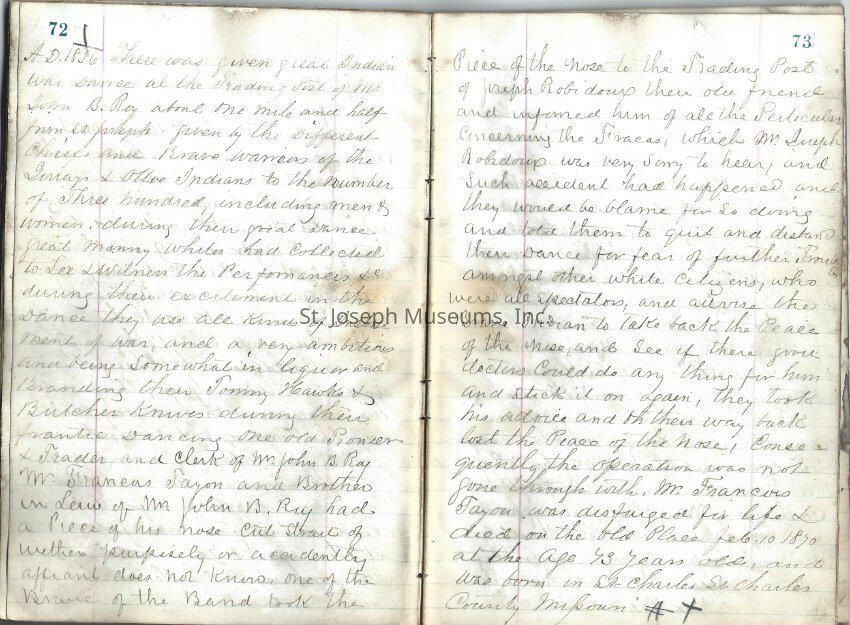 72
A.D. 1836 There was given great Indian
war Dance at the Trading Post of Mr
John B. Roy about one mile and half
from St Joseph. Given by the Different
Chiefs and Brave warriors of the
& Ottoe Indians to the number
of Three hundred, including men &
women. during their great Dance
great manny whites had Collected
to See & witness the Performances &c
during there excitement in the
Dance they use all Kind of
ment of war, and a very ambitious
and being Somewhat in liquor and
Branding their Tommy Hawks &
Butcher Knives during their
frantic Dancing one old Pioneer
& Trader, and Clerk of Mr John B. Roy
Mr. Francois Tayon and Brother
in Law of Mr John B. Roy had
a Piece of his nose Cut Strait of
wether purpisely or accidently
affiant does not Know, one of the
Brave of the Band took the
73
Piece of the Nose to the Trading Post
of Joseph Robidoux their old friend
and informed him of all the Perticulars
concerning the Fracas, which Mr. Joseph
Robidoux was very Sorry to hear, and
Such accident had happened, and
they would be blame for So doing
and told them to quit and
their Dance for fear of further
amongst other white Citizens, who
were all Spectators, and advise the
Indian to Take back the Peace
of the nose, and See if there
docters Could do any thing for him
and Stick it on again, they took
his advice and on their way back
lost the Peace of the Nose, Conse-
quently the operation was not
gone through with, Mr. Francois
Tayon was disfuiged for life &
died on the old Place feb. 10 1870
at the Age 73 years old, and
was born in St Charles St Charles
County Missouri
St. Joseph Museums, Inc.